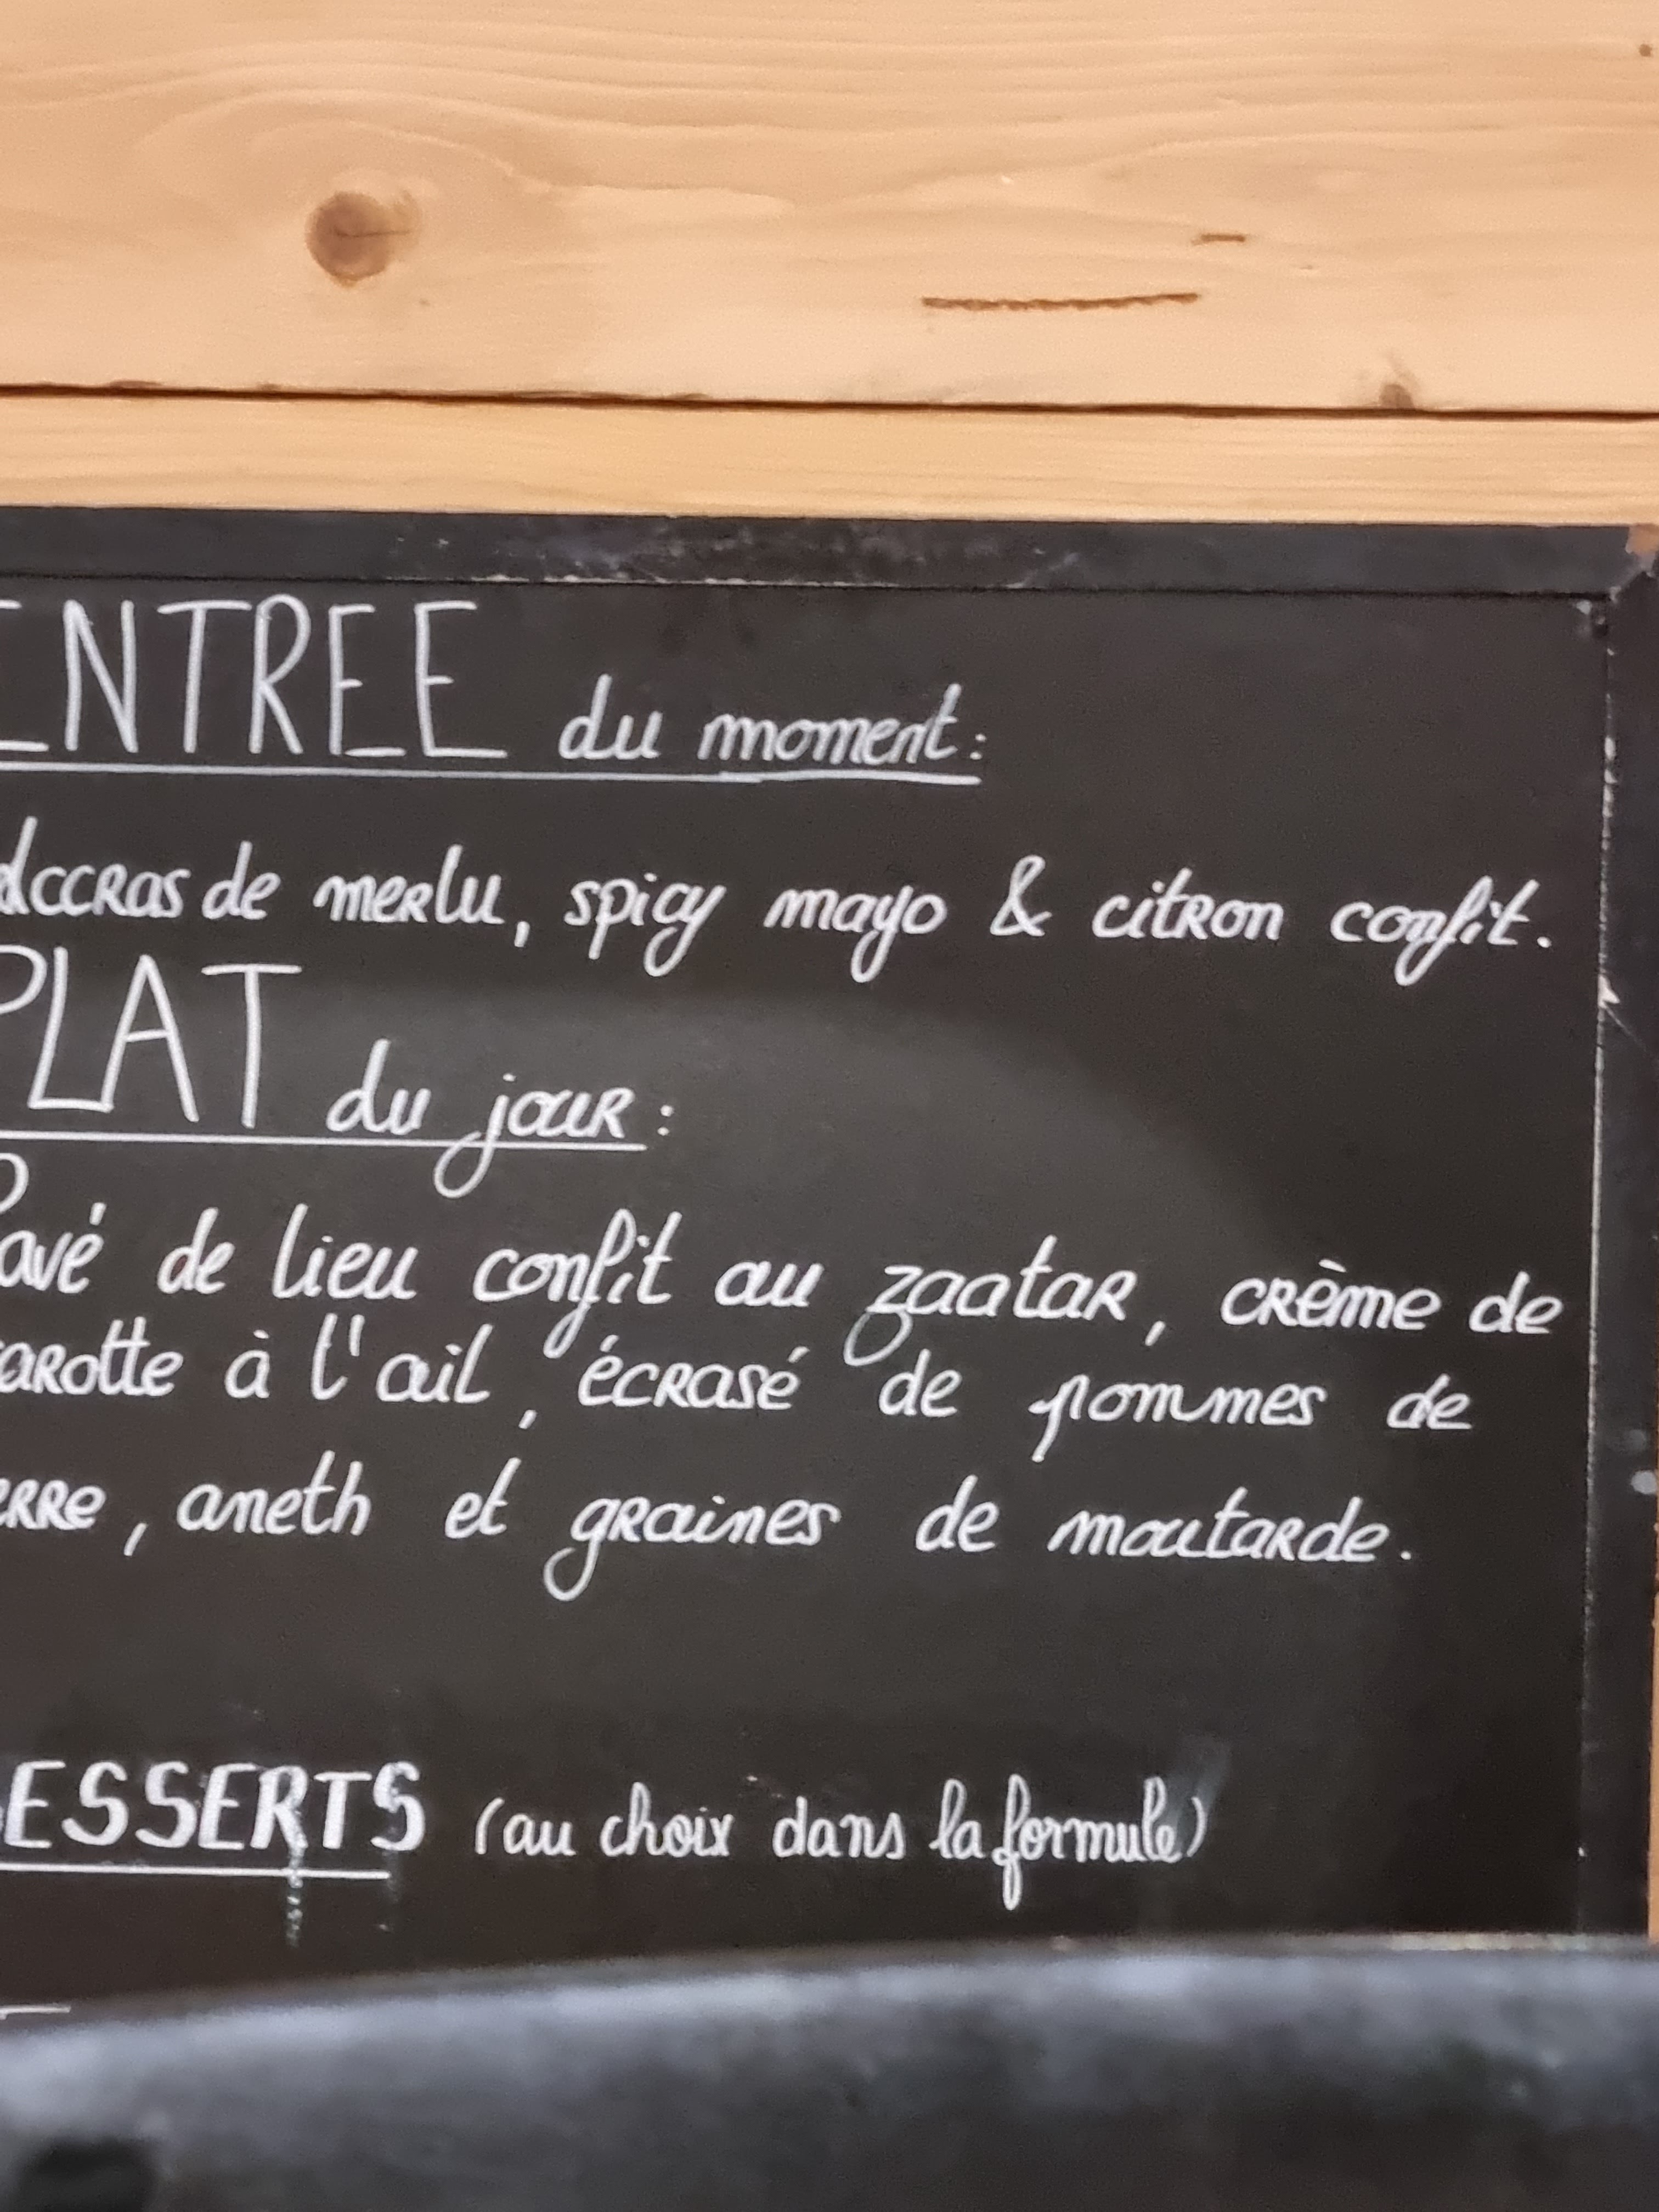 ENTREE du moment:
Accras de merlu, spicy mayo & citron confit.
PLAT du jour:
Pavé de lieu confit au zaatar, crème de
carotte à l'ail, écrasé de pommes de
erre, aneth et graines de moutarde.
ESSERTS (au choix dans la formule)